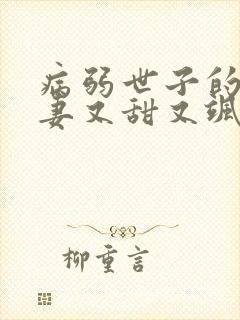 病弱世子的
妻又甜又飒
柳重言